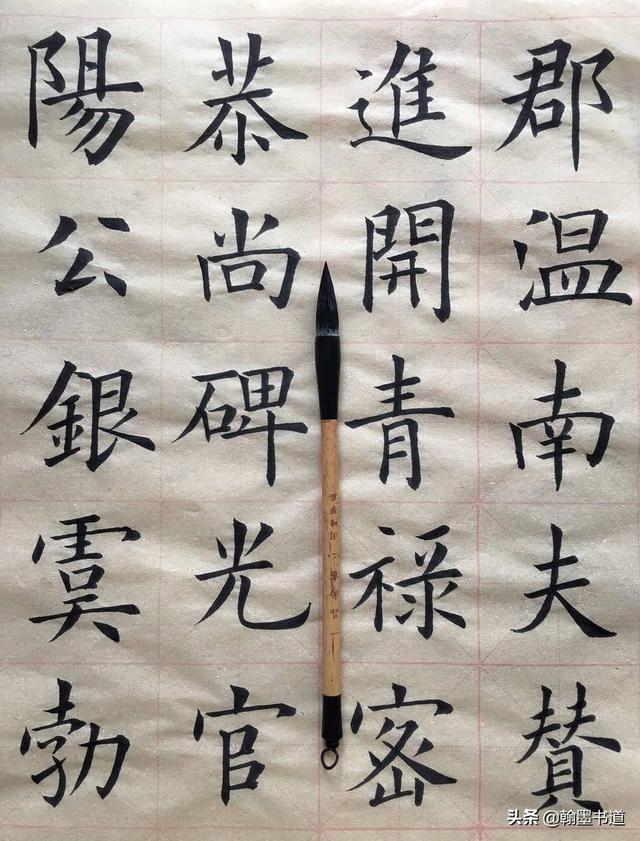 郡温南夫賛
進開青禄密
恭尚碑光官
陽公銀虞勃
头条 @翰墨书道